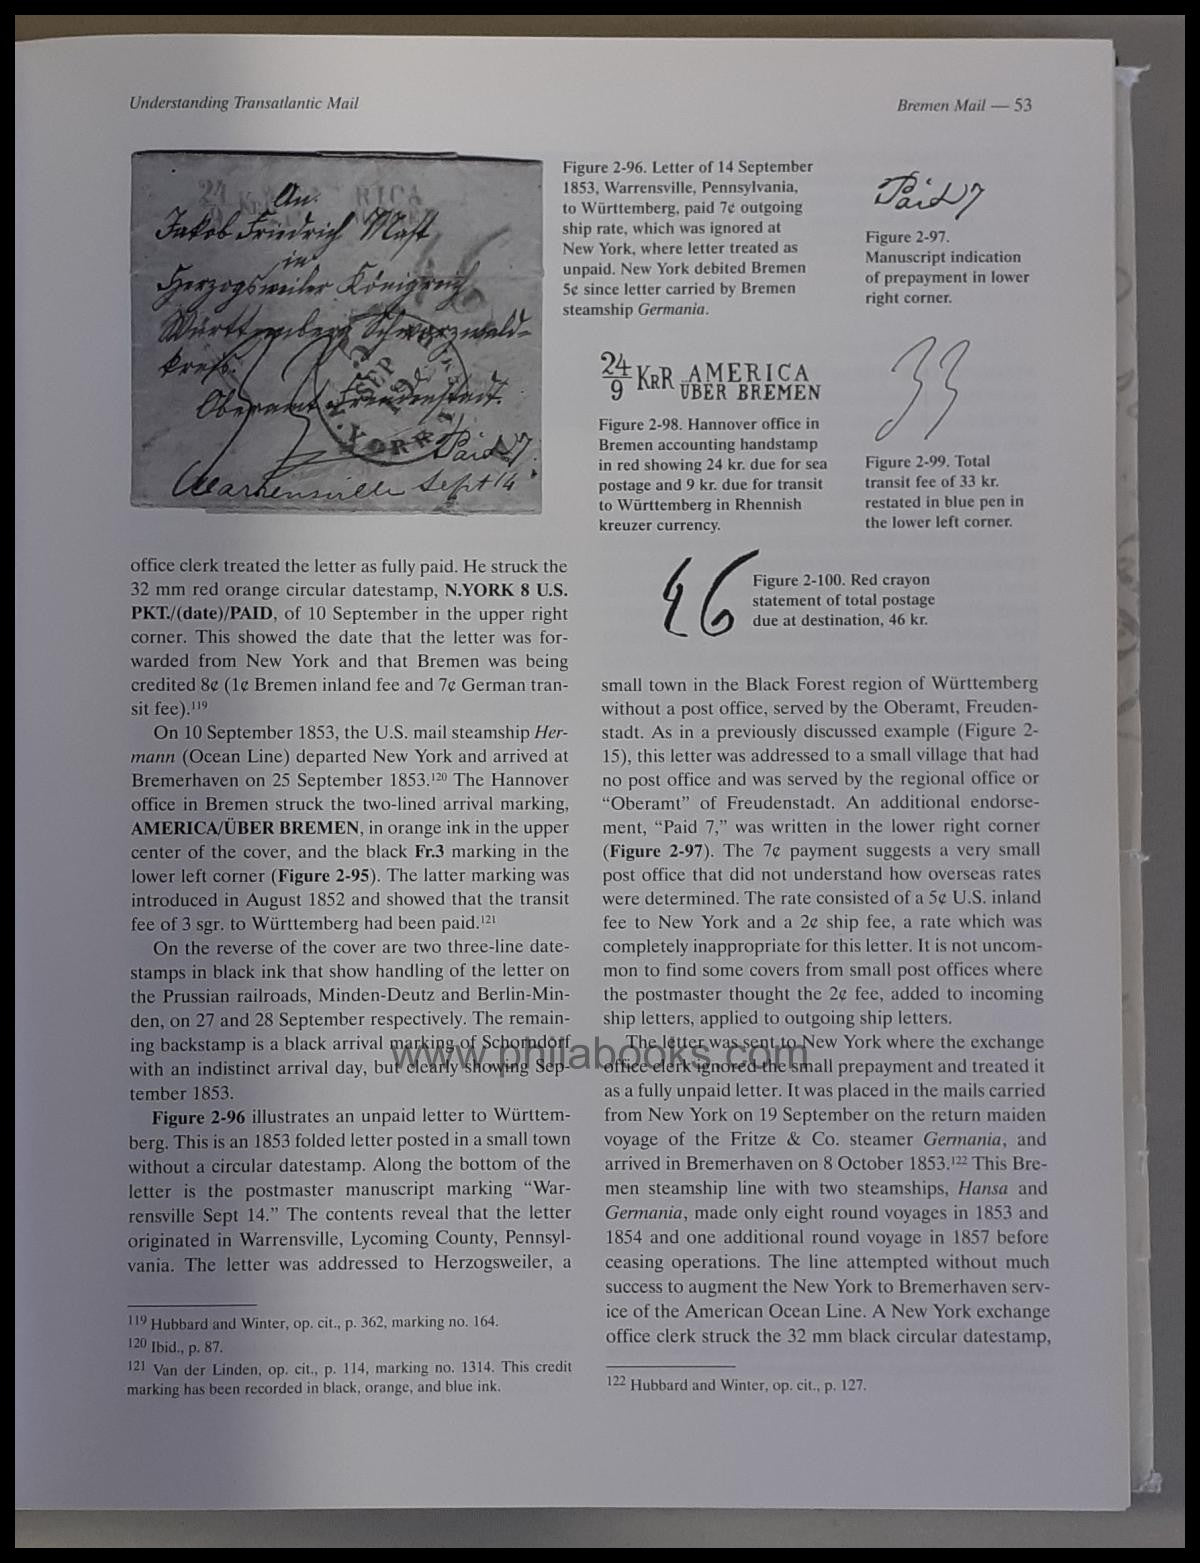 Understanding Transatlantic Mail
Bremen Mail — 53
An.
Jakob Friedrich Mast
in
Herzogsweiler Königreich
Württemberg Schwarzwald-
kreis.
Oberamt Freudenstadt.
Paid 7
Warrensville Sept 14
Figure 2-96. Letter of 14 September
1853, Warrensville, Pennsylvania,
to Württemberg, paid 7¢ outgoing
ship rate, which was ignored at
New York, where letter treated as
unpaid. New York debited Bremen
5¢ since letter carried by Bremen
steamship Germania.
Paid 7
Figure 2-97.
Manuscript indication
of prepayment in lower
right corner.
24/9 KRR AMERICA
ÜBER BREMEN
Figure 2-98. Hannover office in
Bremen accounting handstamp
in red showing 24 kr. due for sea
postage and 9 kr. due for transit
to Württemberg in Rhennish
kreuzer currency.
33
Figure 2-99. Total
transit fee of 33 kr.
restated in blue pen in
the lower left corner.
46
Figure 2-100. Red crayon
statement of total postage
due at destination, 46 kr.
office clerk treated the letter as fully paid. He struck the
32 mm red orange circular datestamp, N.YORK 8 U.S.
PKT./(date)/PAID, of 10 September in the upper right
corner. This showed the date that the letter was for-
warded from New York and that Bremen was being
credited 8¢ (1¢ Bremen inland fee and 7¢ German tran-
sit fee).119
On 10 September 1853, the U.S. mail steamship Her-
mann (Ocean Line) departed New York and arrived at
Bremerhaven on 25 September 1853.120 The Hannover
office in Bremen struck the two-lined arrival marking,
AMERICA/ÜBER BREMEN, in orange ink in the upper
center of the cover, and the black Fr.3 marking in the
lower left corner (Figure 2-95). The latter marking was
introduced in August 1852 and showed that the transit
fee of 3 sgr. to Württemberg had been paid.121
On the reverse of the cover are two three-line date-
stamps in black ink that show handling of the letter on
the Prussian railroads, Minden-Deutz and Berlin-Min-
den, on 27 and 28 September respectively. The remain-
ing backstamp is a black arrival marking of Schorndorf
with an indistinct arrival day, but clearly showing Sep-
tember 1853.
Figure 2-96 illustrates an unpaid letter to Württem-
berg. This is an 1853 folded letter posted in a small town
without a circular datestamp. Along the bottom of the
letter is the postmaster manuscript marking “War-
rensville Sept 14.” The contents reveal that the letter
originated in Warrensville, Lycoming County, Pennsyl-
vania. The letter was addressed to Herzogsweiler, a
119 Hubbard and Winter, op. cit., p. 362, marking no. 164.
120 Ibid., p. 87.
121 Van der Linden, op. cit., p. 114, marking no. 1314. This credit
marking has been recorded in black, orange, and blue ink.
small town in the Black Forest region of Württemberg
without a post office, served by the Oberamt, Freuden-
stadt. As in a previously discussed example (Figure 2-
15), this letter was addressed to a small village that had
no post office and was served by the regional office or
“Oberamt” of Freudenstadt. An additional endorse-
ment, “Paid 7,” was written in the lower right corner
(Figure 2-97). The 7¢ payment suggests a very small
post office that did not understand how overseas rates
were determined. The rate consisted of a 5¢ U.S. inland
fee to New York and a 2¢ ship fee, a rate which was
completely inappropriate for this letter. It is not uncom-
mon to find some covers from small post offices where
the postmaster thought the 2¢ fee, added to incoming
ship letters, applied to outgoing ship letters.
The letter was sent to New York where the exchange
office clerk ignored the small prepayment and treated it
as a fully unpaid letter. It was placed in the mails carried
from New York on 19 September on the return maiden
voyage of the Fritze & Co. steamer Germania, and
arrived in Bremerhaven on 8 October 1853.122 This Bre-
men steamship line with two steamships, Hansa and
Germania, made only eight round voyages in 1853 and
1854 and one additional round voyage in 1857 before
ceasing operations. The line attempted without much
success to augment the New York to Bremerhaven serv-
ice of the American Ocean Line. A New York exchange
office clerk struck the 32 mm black circular datestamp,
122 Hubbard and Winter, op. cit., p. 127.
www.philabooks.com